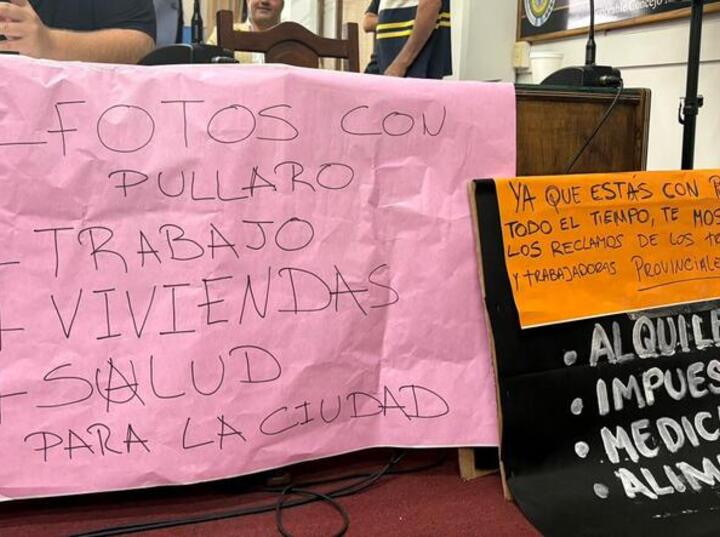 -FOTOS CON
PULLARO
+ TRABAJO
+ VIVIENDAS
+ SALUD
PARA LA CIUDAD
YA QUE ESTÁS CON
TODO EL TIEMPO, TE
LOS RECLAMOS DE LOS
Y TRABAJADORAS PROVINCIALE
• ALQUIL
• IMPUES
• MEDIC
• ALIM
Concejo